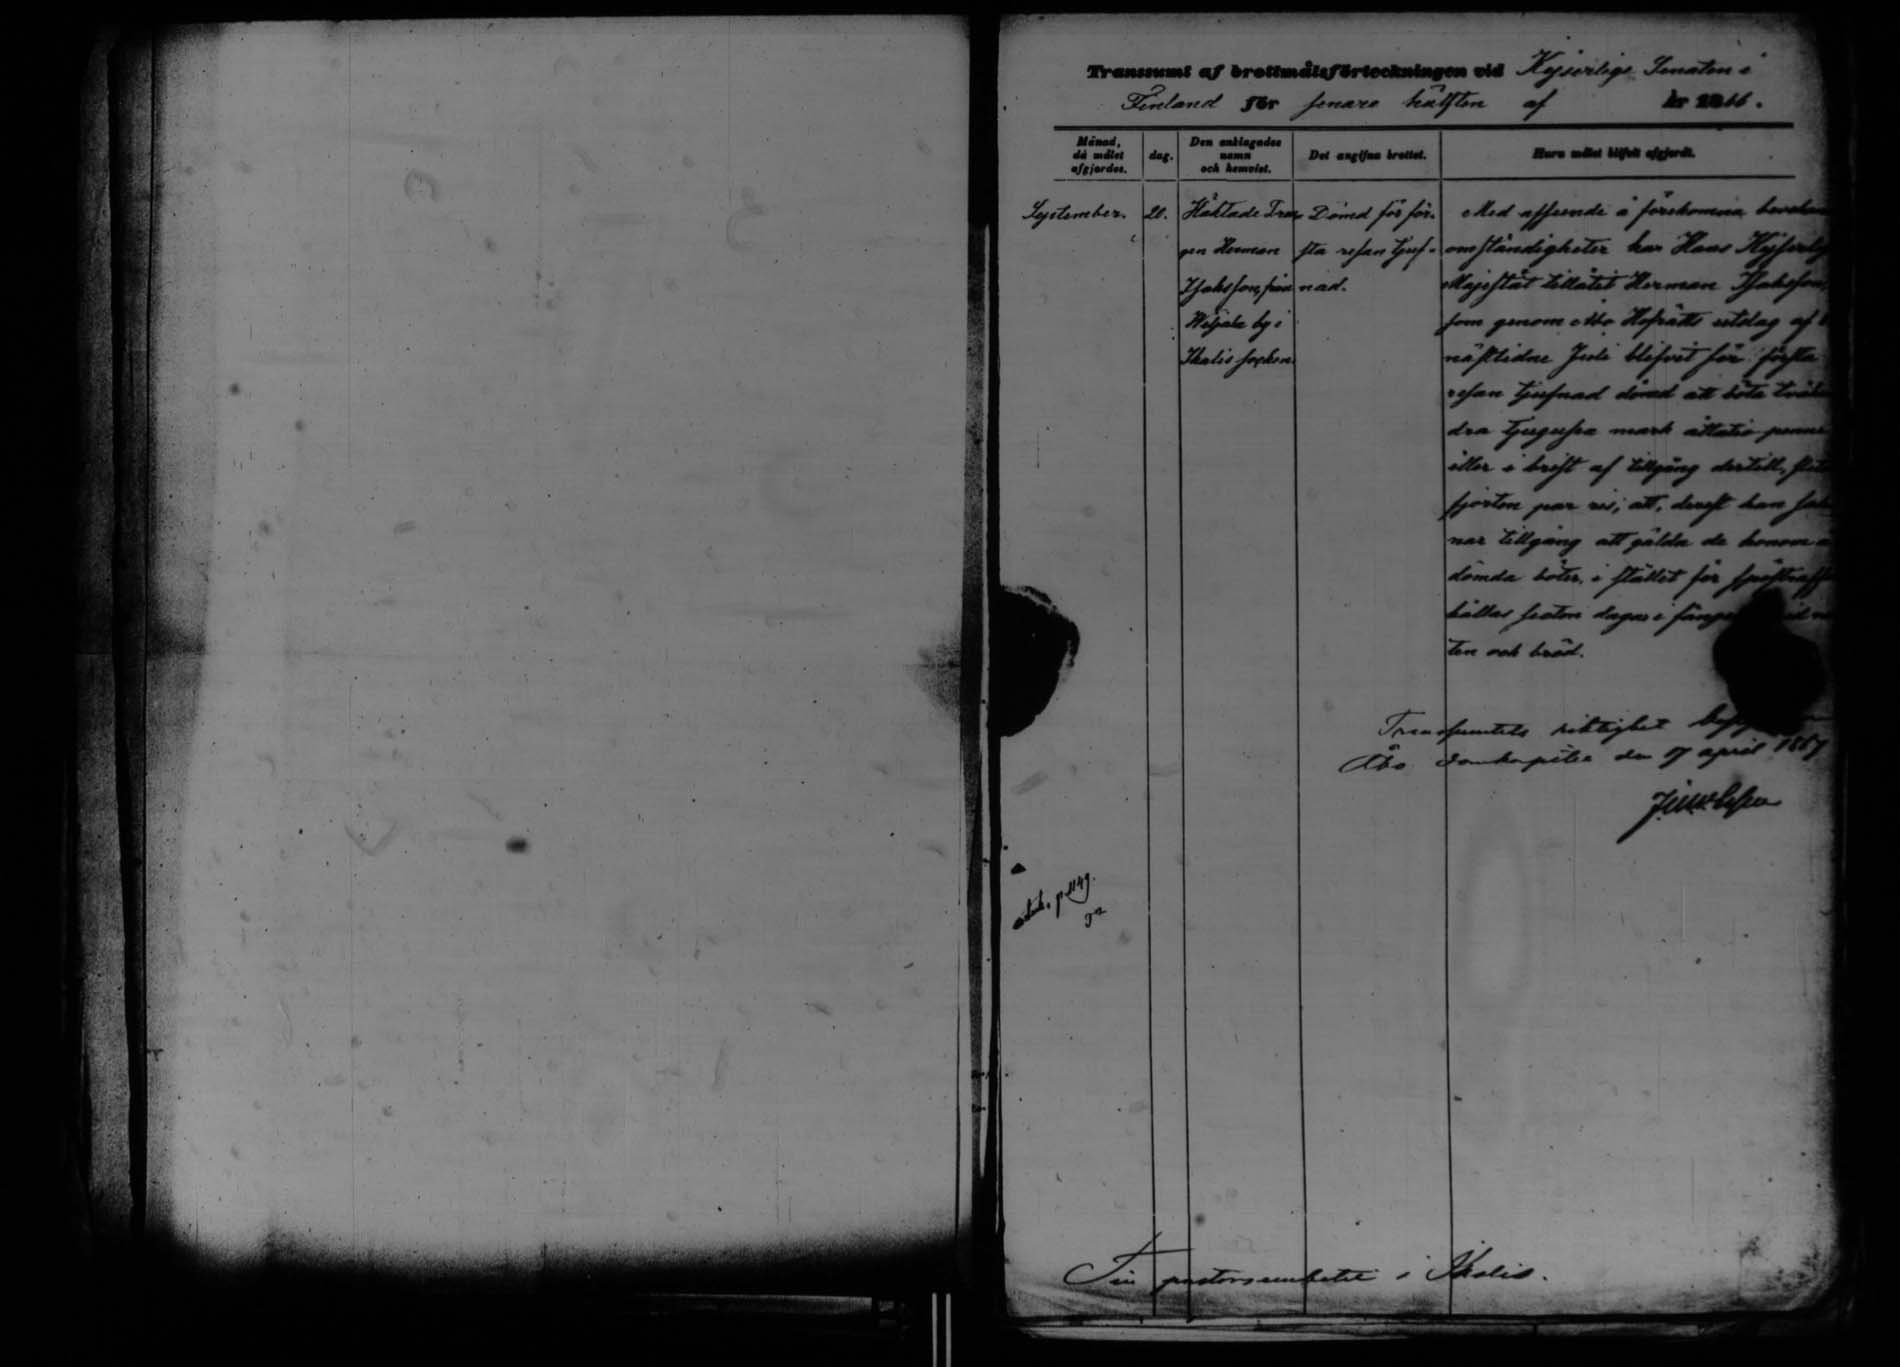 Transsumt af brottmålsförteckningen vid Kejserliga Senaten i
Finland för senare hälften af år 1866.
Månad, då målet afgjordes.
dag.
Den anklagades namn och hemvist.
Det angifna brottet.
Huru målet blifvit afgjordt.
September.
20.
Häktade Drän
gen Herman
Isaksson, från
by i
Ikalis socken.
Dömd för för
sta resan tjuf-
nad.
Med afseende å förekomna
omständigheter har Hans Kejserlig
Majestät tillåtit Herman Isaksson,
som genom Åbo Hofrätts utslag af
nästlidne Juli blifvit för första
resan tjufnad dömd att böta
dra tjugusex mark åttatio penni
eller i brist af tillgång dertill,
fjorton par ris, att, derest han sak
nar tillgång att gälda de honom
dömda böter, i stället för spöstraff
hållas sexton dagar i fäng
ten och bröd.
Transsumtets riktighet
Åbo domkapitel den 17 april 1867
p 1149.
Till pastorsembetet i Ikalis.